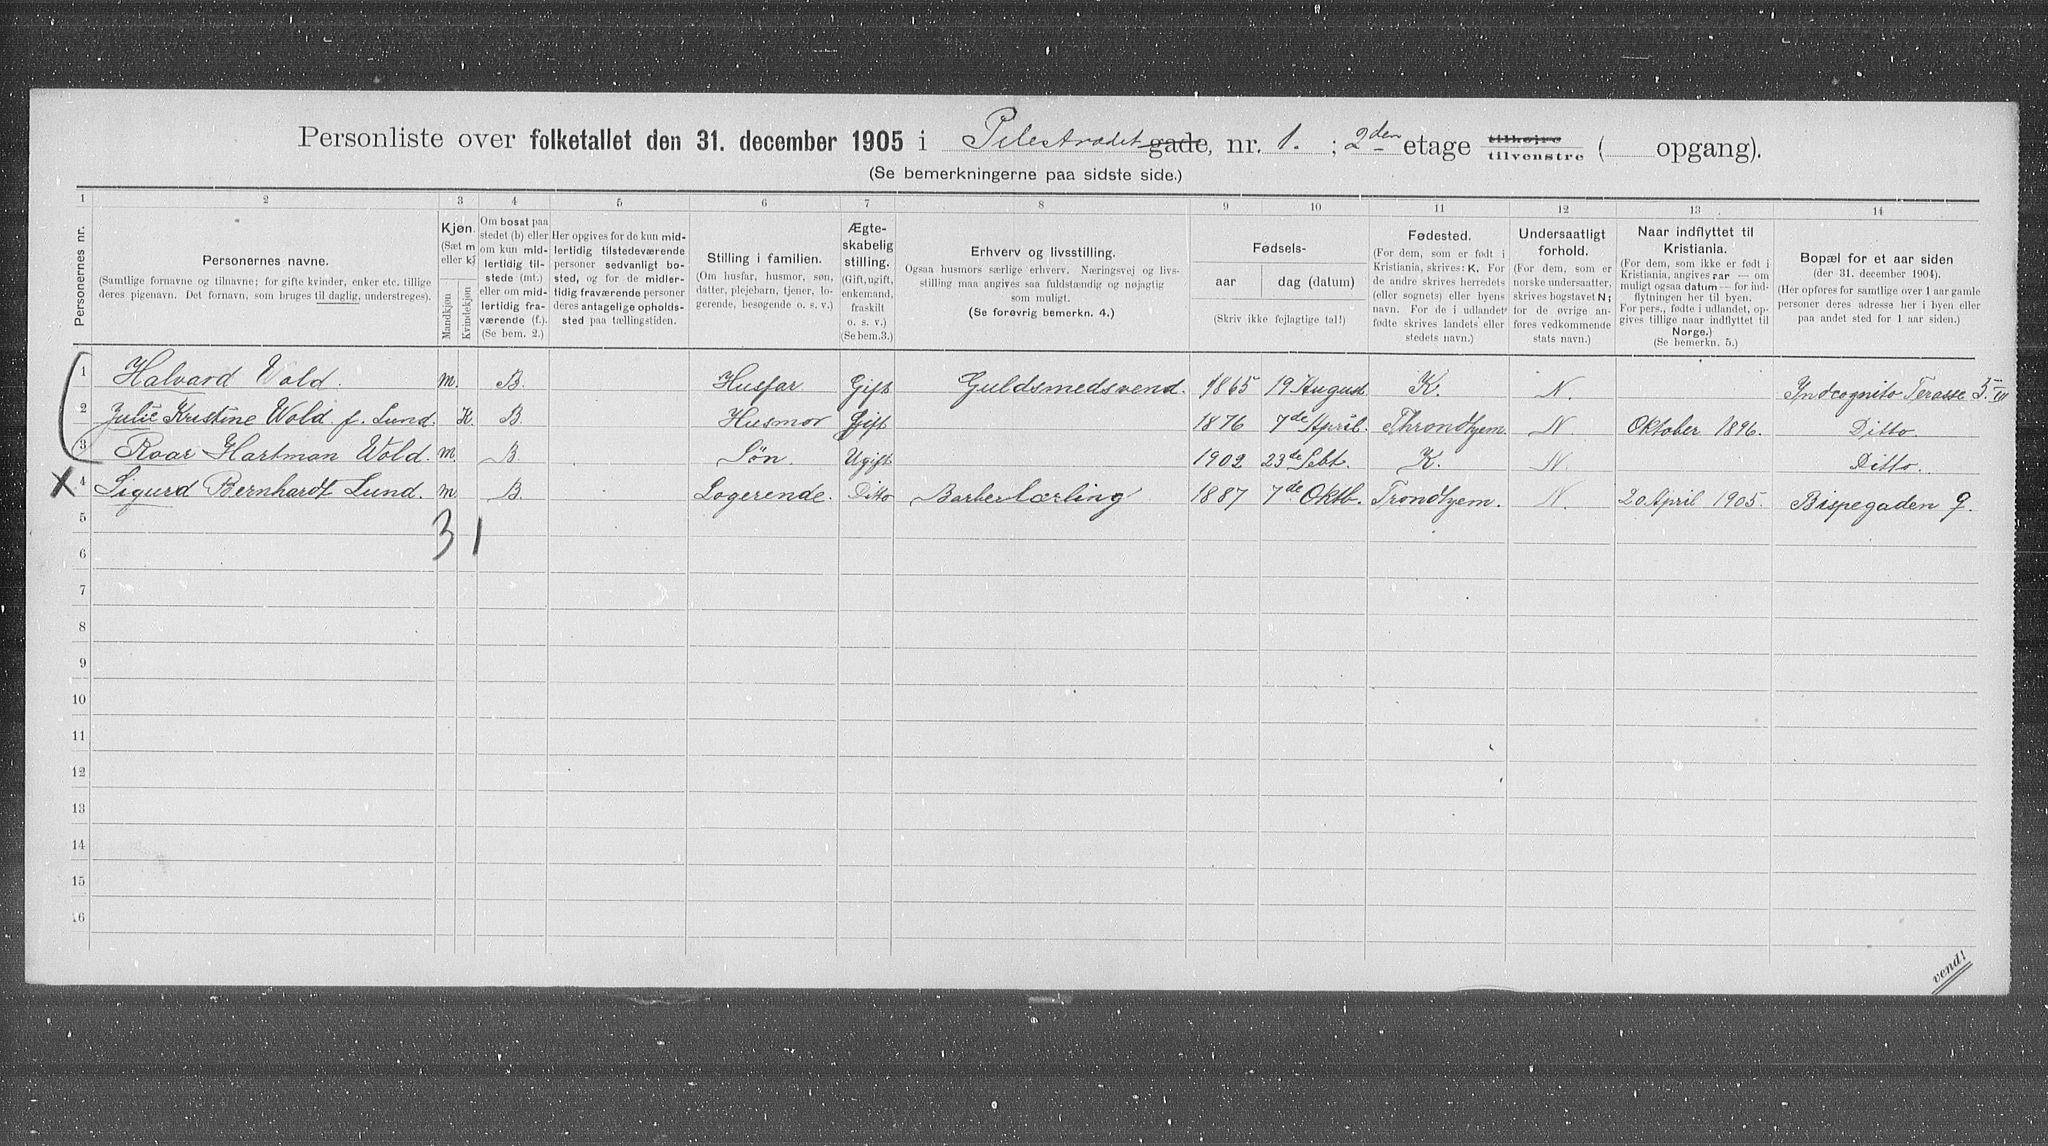 Personliste over folketallet den 31. december 1905 i Pilestrædet gade, nr. 1. ; 2den etage tilhøjre tilvenstre ( opgang).
(Se bemerkningerne paa sidste side.)
1 2 3 4 5 6 7 8 9 10 11 12 13 14
Personernes nr.
Personernes navne.
(Samtlige fornavne og tilnavne; for gifte kvinder, enker etc. tillige
deres pigenavn. Det fornavn, som bruges til daglig, understreges).
Kjøn.
(Sæt m
eller k)
Mandkjøn
Kvindekjøn
Om bosat paa
stedet (b) eller
om kun mid-
lertidig til-
stede (mt.)
eller om mid-
lertidig fra-
værende (f.).
(Se bem. 2.)
Her opgives for de kun mid-
lertidig tilstedeværende
personer sedvanligt bo-
sted, og for de midler-
tidig fraværende personer
deres antagelige opholds-
sted paa tællingstiden.
Stilling i familien.
(Om husfar, husmor, søn,
datter, plejebarn, tjener, lo-
gerende, besøgende o. s. v.)
Ægte-
skabelig
stilling.
(Gift, ugift,
enkemand,
fraskilt
o. s. v.)
(Se bem. 3.)
Erhverv og livsstilling.
Ogsaa husmors særlige erhverv. Næringsvej og livs-
stilling maa angives saa fuldstændig og nøjagtig
som muligt.
(Se forøvrig bemerkn. 4.)
Fødsels-
aar dag (datum)
(Skriv ikke fejlagtige tal!)
Fødested.
(For dem, som er født i
Kristiania, skrives: K. For
de andre skrives herredets
(eller sognets) eller byens
navn. For de i udlandet
fødte skrives landets eller
stedets navn.)
Undersaatligt
forhold.
(For dem, som er
norske undersaatter,
skrives bogstavet N;
for de øvrige an-
føres vedkommende
stats navn.)
Naar indflyttet til
Kristiania.
(For dem, som ikke er født i
Kristiania, angives aar — om
muligt ogsaa datum — for ind-
flytningen her til byen.
For pers., fødte i udlandet, op-
gives tillige naar indflyttet til
Norge.)
(Se bemerkn. 5.)
Bopæl for et aar siden
(der 31. december 1904).
(Her opføres for samtlige over 1 aar gamle
personer deres adresse her i byen eller
paa andet sted for 1 aar siden.)
1 Halvard Wold. m. B. Husfar Gift Guldsmedsvend. 1865 19 August K. N. Indcognito Terasse 5 III
2 Julie Kristine Wold. f. Lund. K. B. Husmor Gift 1876 7de April. Throndhjem N Oktober 1896. Ditto.
3 Roar Hartman Wold. m. B. Søn. Ugift 1902 23de Sebt. K. N. Ditto.
X 4 Sigurd Bernhardt Lund. m B. Logerende. Ditto Barberlærling 1887 7de Oktb. Trondhjem. N. 20 April 1905. Bispegaden 9.
5
3 1
6
7
8
9
10
11
12
13
14
15
16
vend!